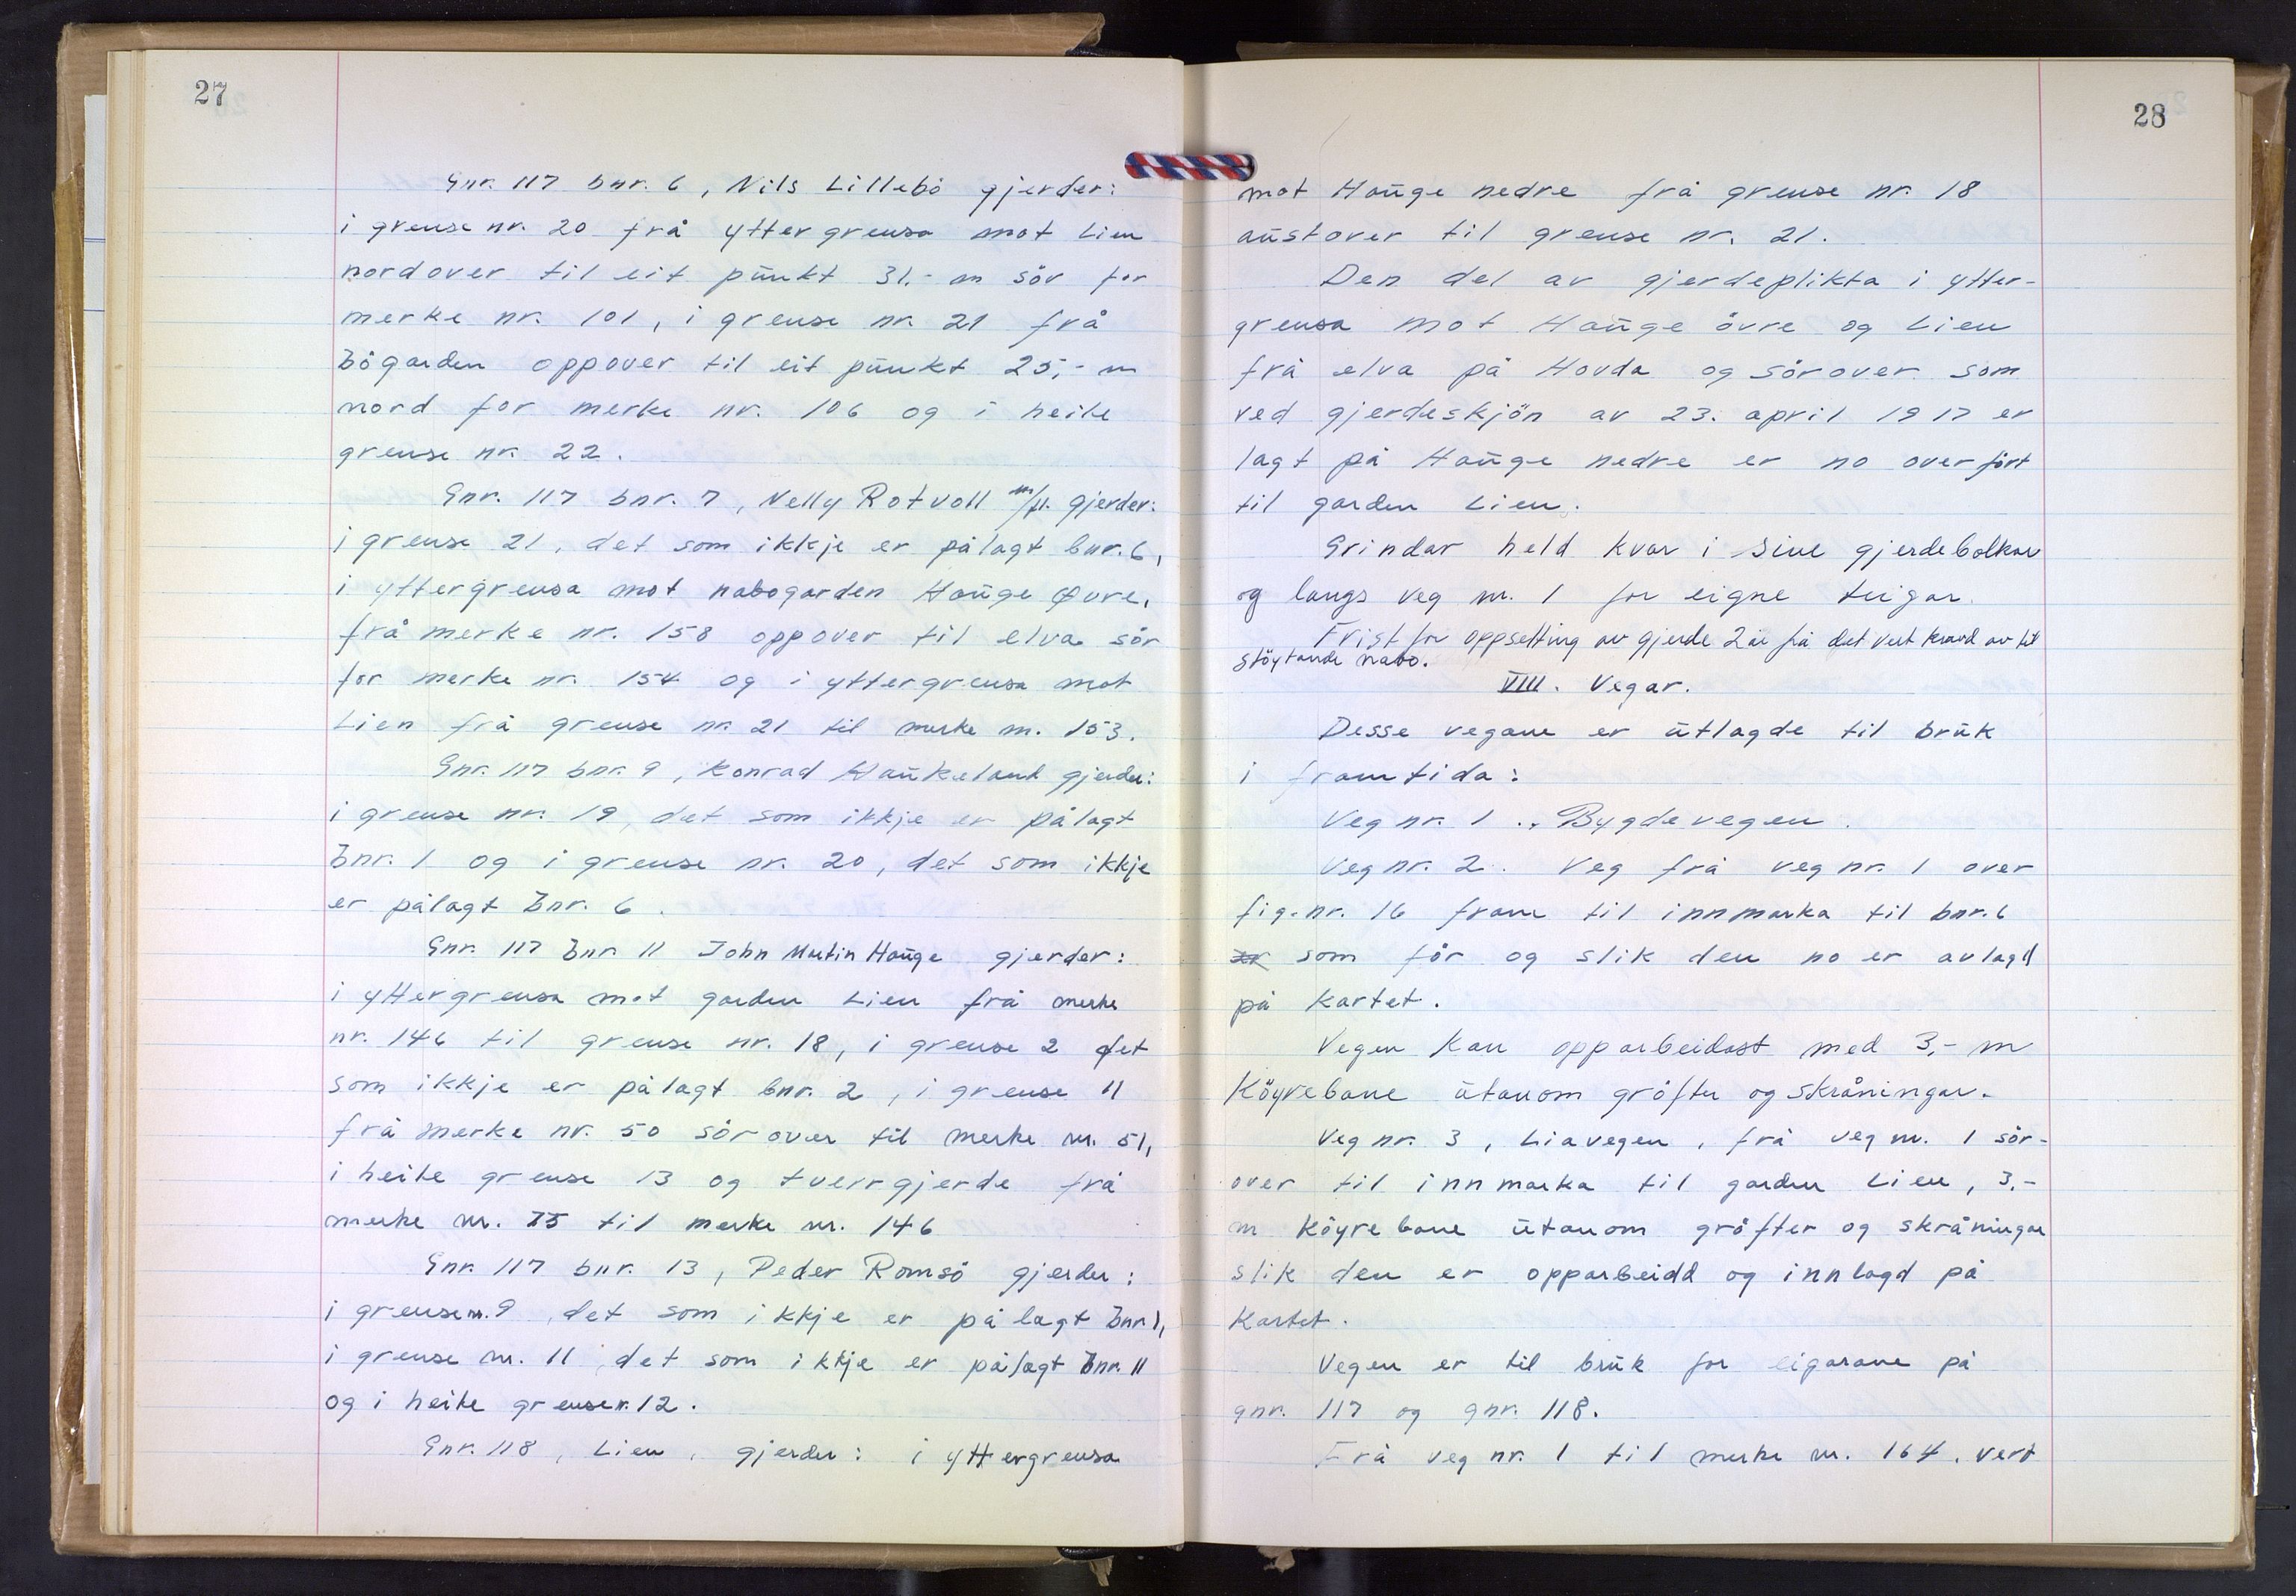 27
Gnr. 117 bnr. 6, Nils Lillebö gjerder:
i grense nr. 20 frå yttergrensa mot Lien
nordover til eit punkt 31,- m sör for
merke nr. 101, i grense nr. 21 frå
bögarden oppover til eit punkt 25,- m
nord for merke nr. 106 og i heile
grense nr. 22.
Gnr. 117 bnr. 7, Nelly Rotvoll m/fl. gjerder:
i grense 21, det som ikkje er pålagt bnr. 6,
i yttergrensa mot nabogarden Hauge Øvre,
frå merke nr. 158 oppover til elva sör
for merke nr. 154 og i yttergrensa mot
Lien frå grense nr. 21 til merke nr. 153.
Gnr. 117 bnr. 9, Konrad Haukeland gjerder:
i grense nr. 19, det som ikkje er pålagt
bnr. 1 og i grense nr. 20, det som ikkje
er pålagt bnr. 6.
Gnr. 117 bnr. 11 John Martin Hauge gjerder:
i yttergrensa mot garden Lien frå merke
nr. 146 til grense nr. 18, i grense 2 det
som ikkje er pålagt bnr. 2, i grense 11
frå merke nr. 50 sörover til merke nr. 51,
i heile grense 13 og tverrgjerde frå
merke nr. 75 til merke nr. 146
Gnr. 117 bnr. 13, Peder Romsö gjerder:
i grense nr. 9, det som ikkje er pålagt bnr. 1,
i grense nr. 11, det som ikkje er pålagt bnr. 11
og i heile grense nr. 12.
Gnr. 118, Lien, gjerder: i yttergrensa
28
mot Hauge nedre frå grense nr. 18
austover til grense nr. 21.
Den del av gjerdeplikta i ytter-
grensa mot Hauge övre og Lien
frå elva på Hovda og sörover som
ved gjerdeskjön av 23. april 1917 er
lagt på Hauge nedre er no overfört
til garden Lien.
Grindar held kvar i sine gjerdebolkar
og langs veg nr. 1 for eigne teigar.
Frist for oppsetting av gjerde 2 år frå det vert kravd av til
støytande nabo.
VIII. Vegar.
Desse vegane er utlagde til bruk
i framtida:
Veg nr. 1.. Bygdevegen.
Veg nr. 2. Veg frå veg nr. 1 over
fig. nr. 16 fram til innmarka til bnr. 6
som för og slik den no er avlagd
på kartet.
Vegen kan opparbeidast med 3,- m
Köyrebane utanom gröfter og skråningar.
Veg nr. 3, Liavegen, frå veg nr. 1 sör-
over til innmarka til garden Lien, 3,-
m köyrebane utanom gröfter og skråningar
slik den er opparbeidd og innlagd på
kartet.
Vegen er til bruk for eigarane på
gnr. 117 og gnr. 118.
Frå veg nr. 1 til merke nr. 164, vert